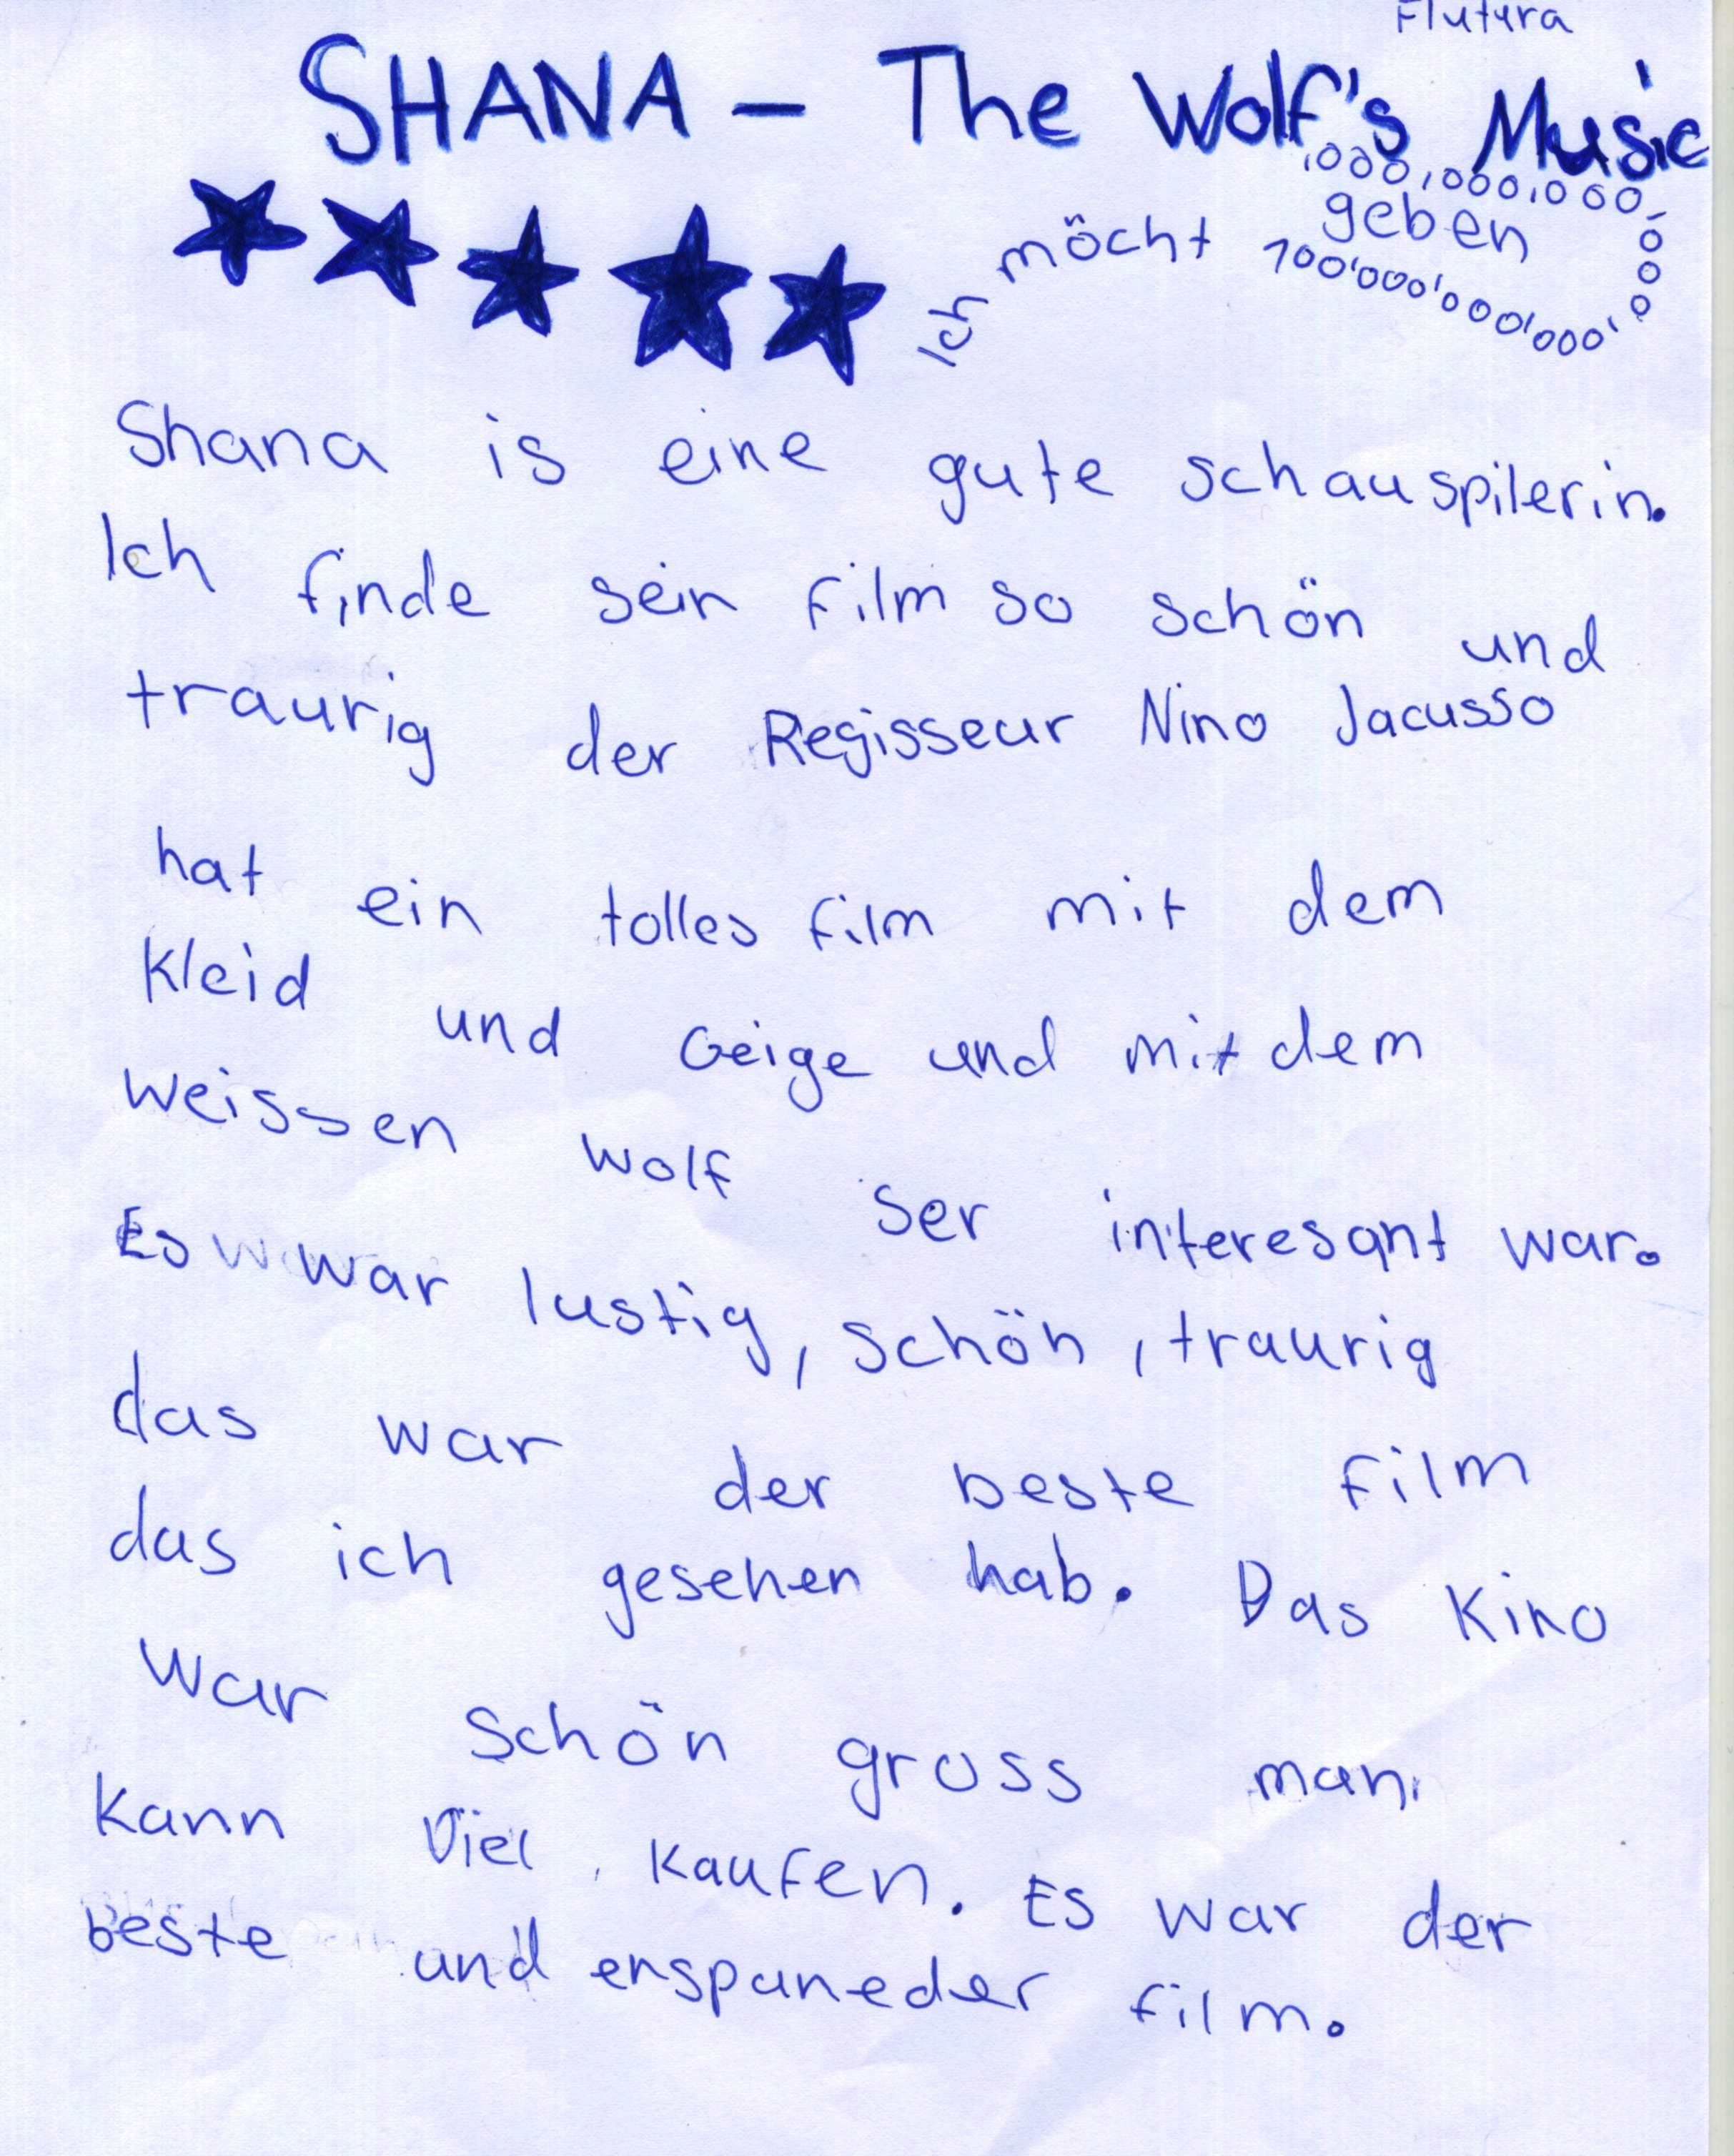 Flutura
SHANA - The Wolf's Music
Ich möcht geben
100'000'000'000'000,000,000,000,
Shana is eine gute schauspilerin.
Ich finde sein film so schön und
traurig der Regisseur Nino Jacusso
hat ein tolles film mit dem
Kleid und Geige und mit dem
weissen wolf ser interesant war.
Es war lustig, schön, traurig
das war der beste film
das ich gesehen hab. Das Kino
war schön gross man
kann viel kaufen. Es war der
beste und enspaneder film.